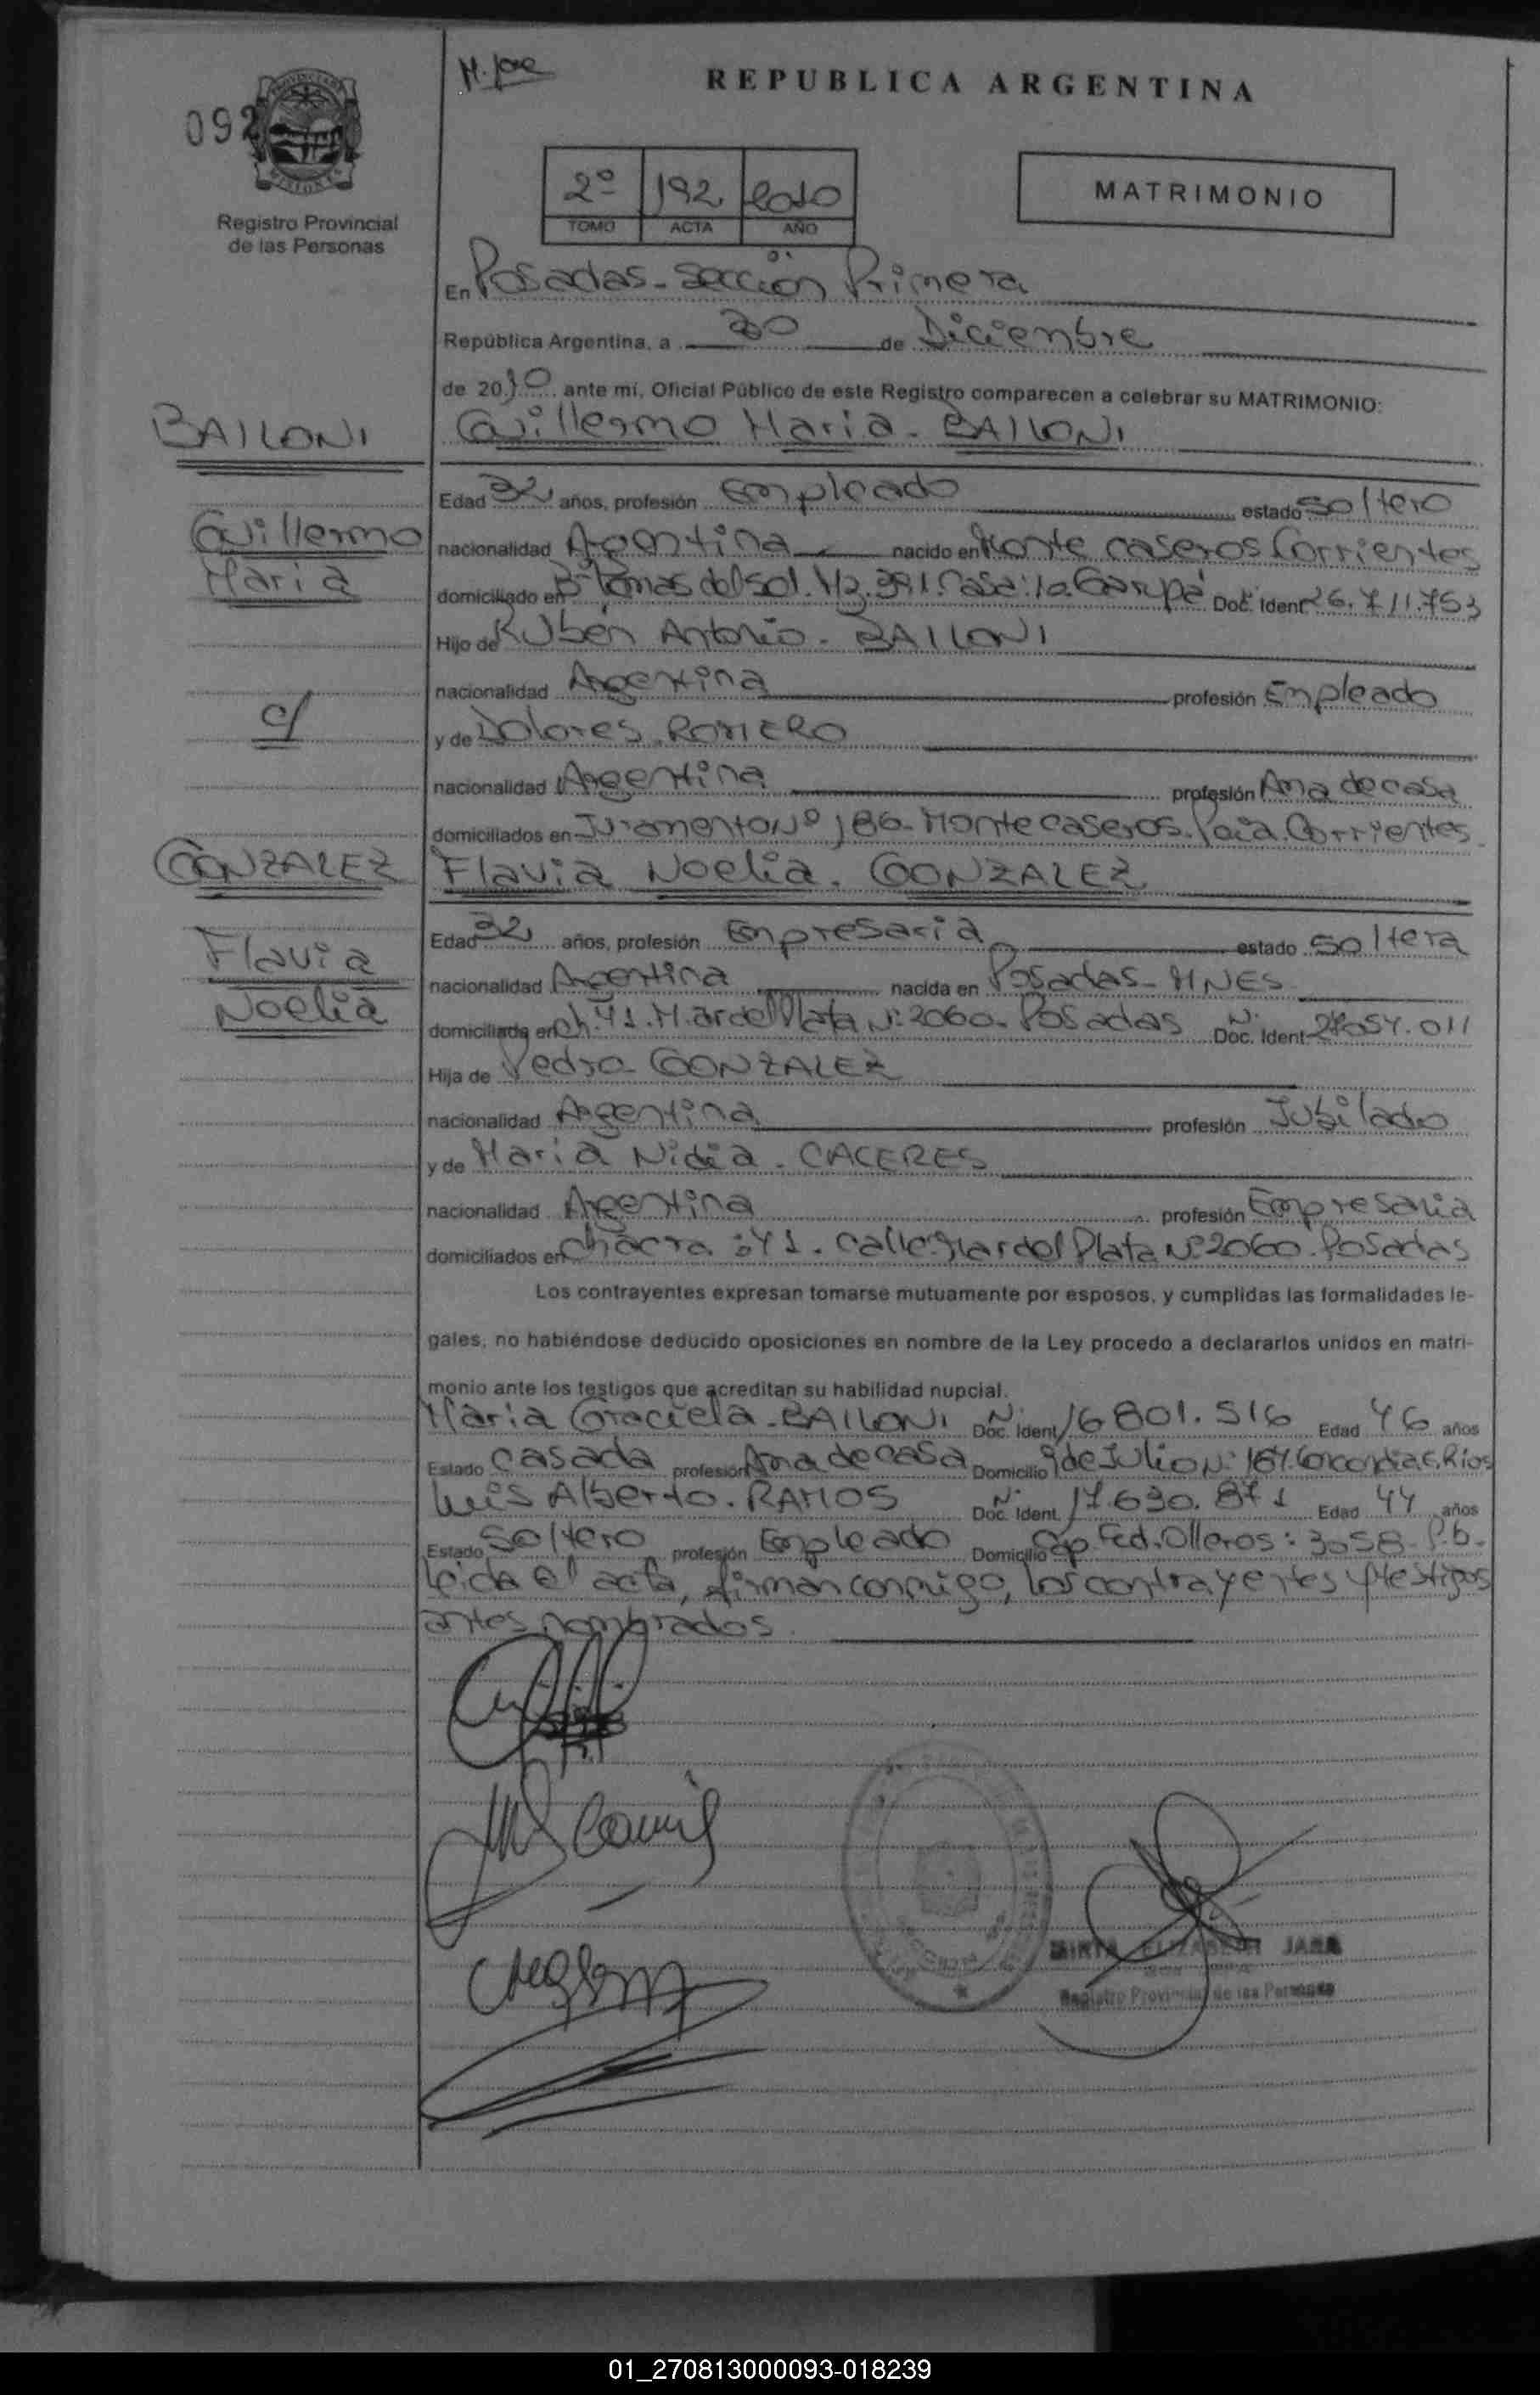 REPUBLICA ARGENTINA
092
Registro Provincial
de las Personas
2º 192 2010
TOMO ACTA AÑO
MATRIMONIO
En Posadas - Sección Primera
República Argentina, a 30 de Diciembre
de 2010 ante mí, Oficial Público de este Registro comparecen a celebrar su MATRIMONIO:
BAILONI
Guillermo Maria - BAILONI
Edad 32 años, profesión Empleado estado soltero
Guillermo
Maria
nacionalidad Argentina nacido en Monte caseros Corrientes
domiciliado en Bº Lomas del sol. Casa: 10. Garupá Doc. Ident 26.711.753
Hijo de Rubén Antonio - BAILONI
nacionalidad Argentina profesión Empleado
c/
y de Dolores. ROMERO
nacionalidad Argentina profesión Ama de casa
domiciliados en Juramento Nº 186 - Monte caseros. Pcia. Corrientes
GONZALEZ
Flavia Noelia. GONZALEZ
Edad 32 años, profesión Empresaria estado soltera
Flavia
Noelia
nacionalidad Argentina nacida en Posadas - MNES
domiciliada en ch. 41. Mar del Plata Nº 2060. Posadas Nº Doc. Ident 27.054.011
Hija de Pedro - GONZALEZ
nacionalidad Argentina profesión Jubilado
y de Maria Nidia - CACERES
nacionalidad Argentina profesión Empresaria
domiciliados en chacra: 41. calle: Mar del Plata Nº 2060. Posadas
Los contrayentes expresan tomarse mutuamente por esposos, y cumplidas las formalidades le-
gales, no habiéndose deducido oposiciones en nombre de la Ley procedo a declararlos unidos en matri-
monio ante los testigos que acreditan su habilidad nupcial.
Maria Graciela - BAILONI Nº Doc. Ident 16.801.516 Edad 46 años
Estado Casada profesión Ama de casa Domicilio 9 de Julio Nº 167. Concordia E. Rios
Luis Alberto. RAMOS Nº Doc. Ident. 17.630.871 Edad 44 años
Estado Soltero profesión Empleado Domicilio Cap. Fed. Olleros: 3058 - P.b.
Leida el acta, firman conmigo, los contrayentes y testigos
antes nombrados.
MIRTA ELIZABETH JARA
Registro Provincial de las Personas
01_270813000093-018239